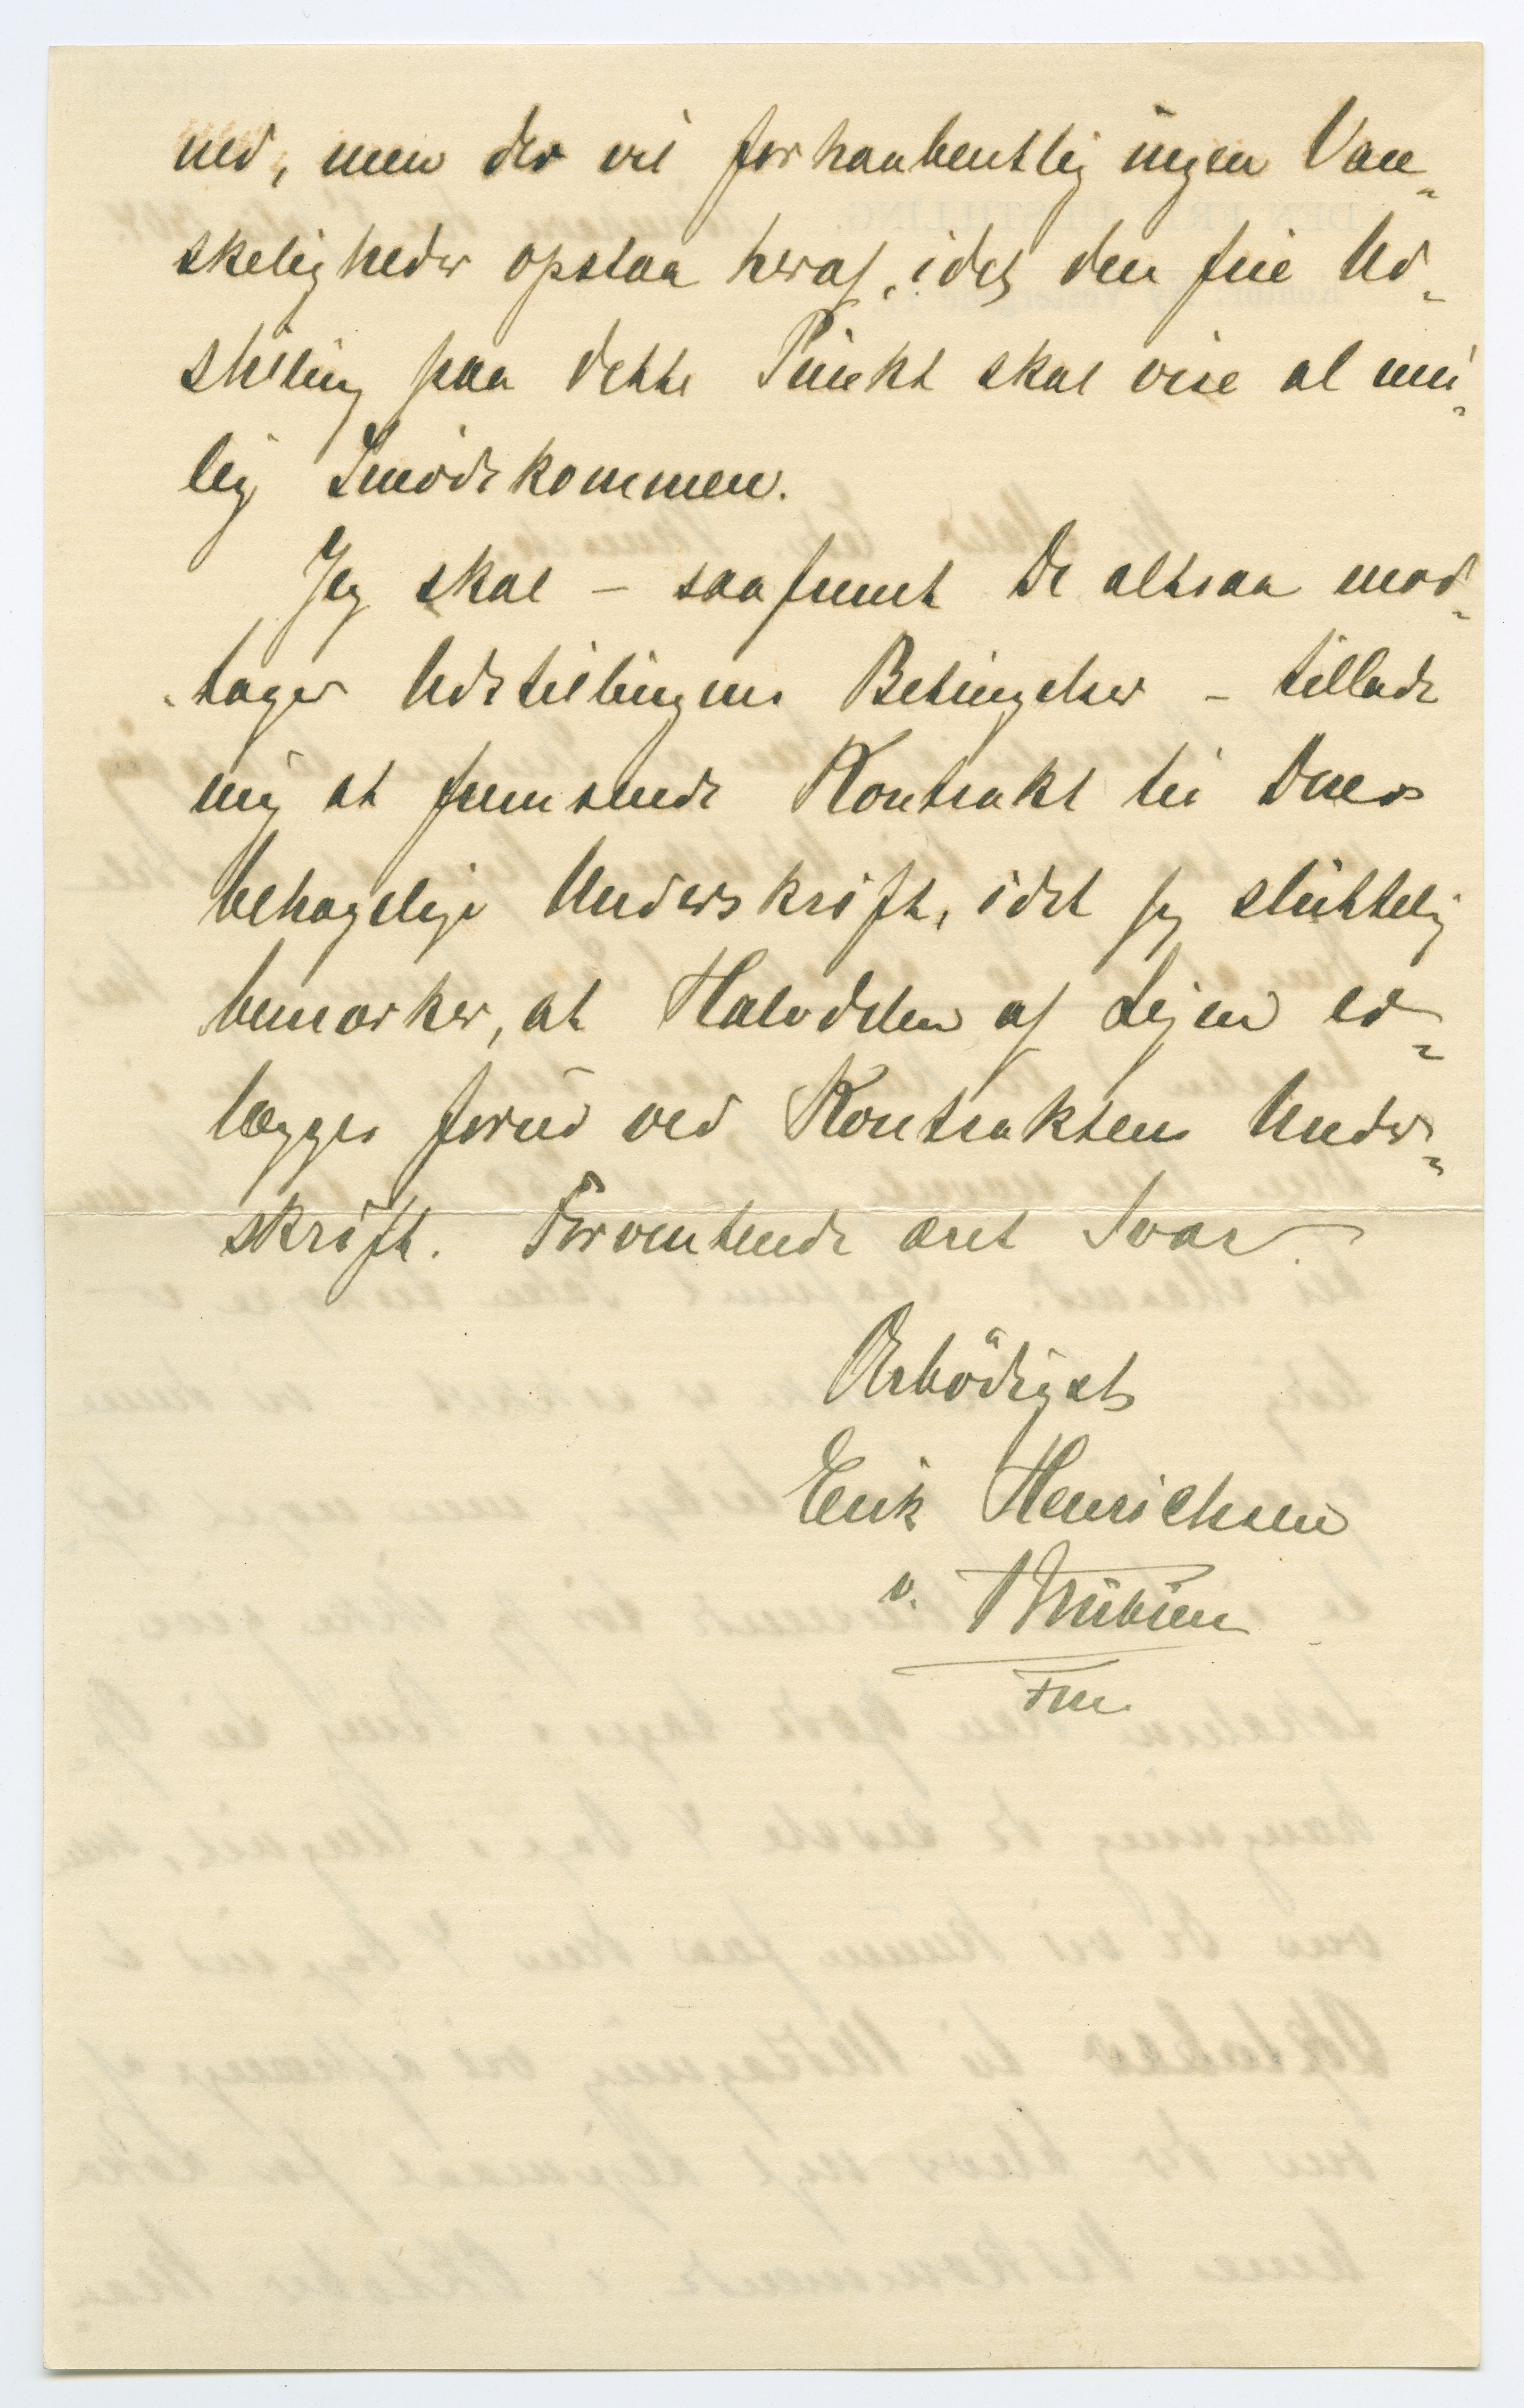 ned, men der vil forhaabentlig ingen Van-
skeligheder opstaa heraf, idet den frie Ud-
stilling paa dette Punkt skal vise al mu-
lig Imødekommen.
Jeg skal – saafremt De altsaa mod-
tager Udstillingens Betingelser – tillade
mig at fremsende Kontrakt til Deres
behagelige Underskrift, idet jeg sluttelig
bemærker, at Halvdelen af Lejen er-
lægges forud ved Kontraktens Under-
skrift. Forventende æret Svar
Ærbödigst
Erik Henrichsen
v.
Fm.